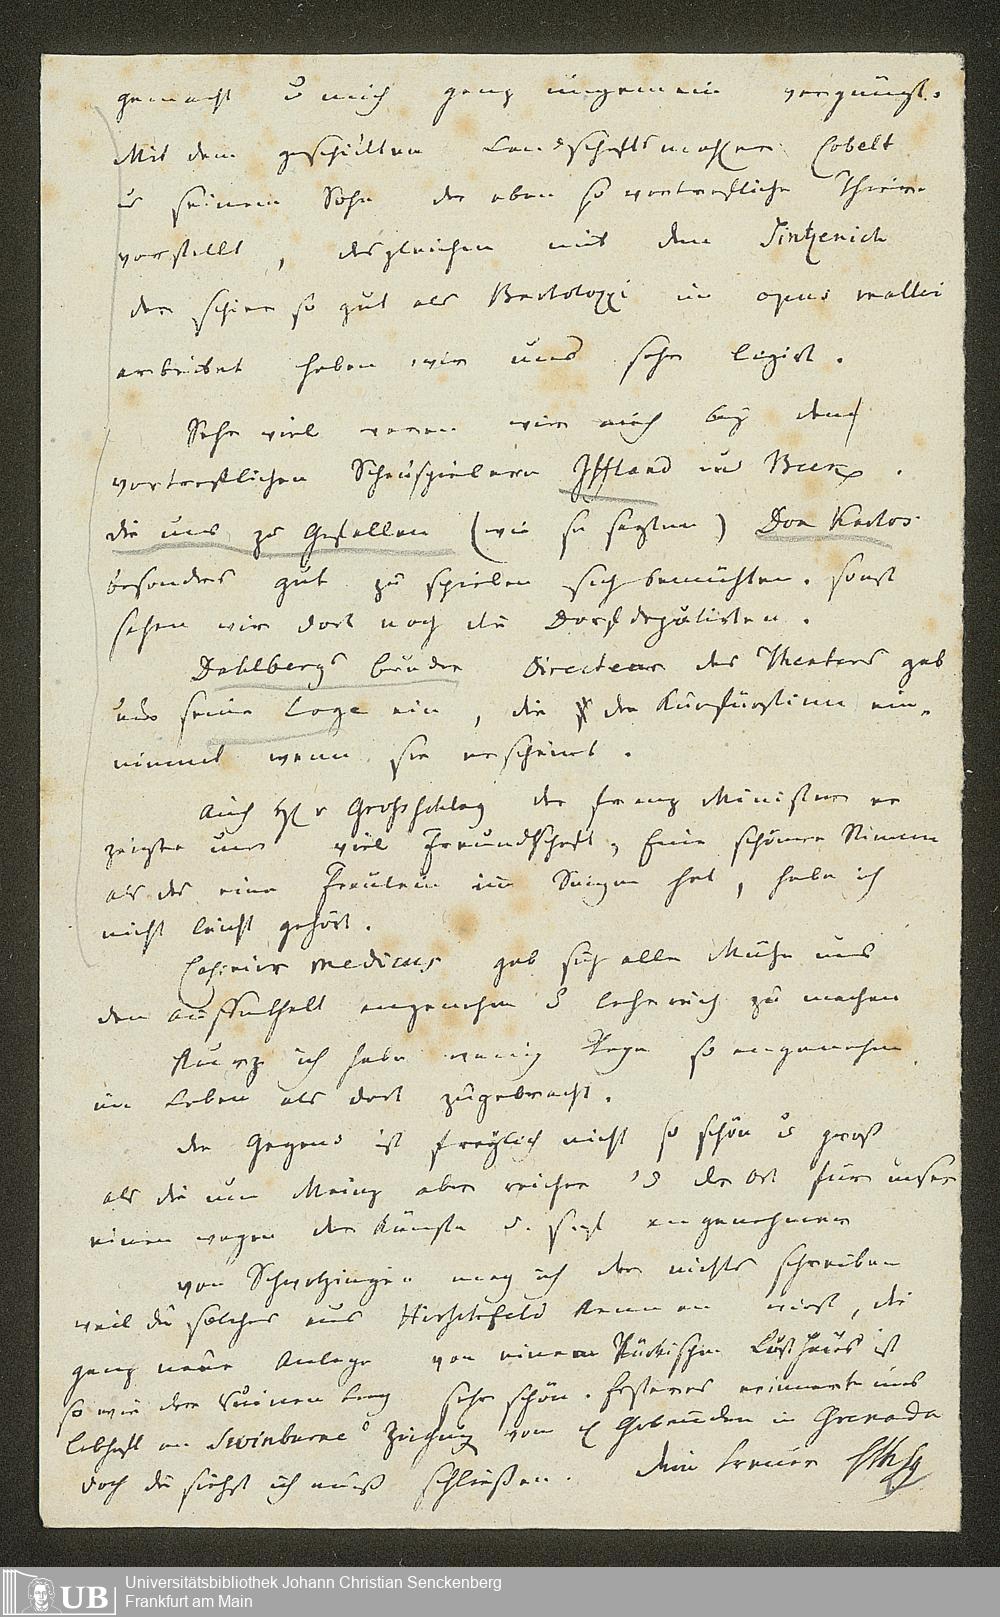 gemacht u mich ganz ungemein vergnügt.
Mit dem geschickten Landschaftsmahler Cobelt
u seinem Sohn der eben so vortrefliche Thiere
vorstellt, desgleichen mit dem Sintzenich
der schier so gut als Bartolozzi in opus mallei
arbeitet haben wir uns sehr liirt.
Sehr viel waren wir auch bey den
vortreflichen Schauspielern Iffland und Beck.
die uns zu Gefallen (wie sie sagten) Don Karlos
besonders gut zu spielen sich bemühten. sonst
sahen wir dort noch die Dorfdeputirten.
Dahlbergs bruder Directeur des Theaters gab
uns seine Loge ein, die der Kurfürstinn ein-
nimmt wenn sie erscheint.
Auch H v Grosschlag der franz Minister
zeigte uns viel Freundschaft, Eine schönere Stimme
als des eine Fräulein im Singen hat, habe ich
nicht leicht gehört.
Casimir medicus gab sich alle Mühe uns
den Auffenthalt angenehm u lehrreich zu machen
Kurz ich habe wenig Tage so angenehm
im Leben als dort zugebracht.
die Gegend ist freylich nicht so schön u groß
als die um Mainz aber reicher u der Ort für unser
einen wegen der Künste u. angenehmer
von Schwetzingen mag ich dir nichts schreiben
weil du solches aus Hirschfeld kennen wirst, die
ganz neue Anlage von einem Türkischen Lusthaus ist
so wie der Ruinen berg sehr schön. Ersteres erinnerte uns
lebhaft an Swinburne's Zeichnung von Gebäuden in Grenada
doch du siehst ich muß schließen. dein treuer
Universitätsbibliothek Johann Christian Senckenberg
Frankfurt am Main
UB